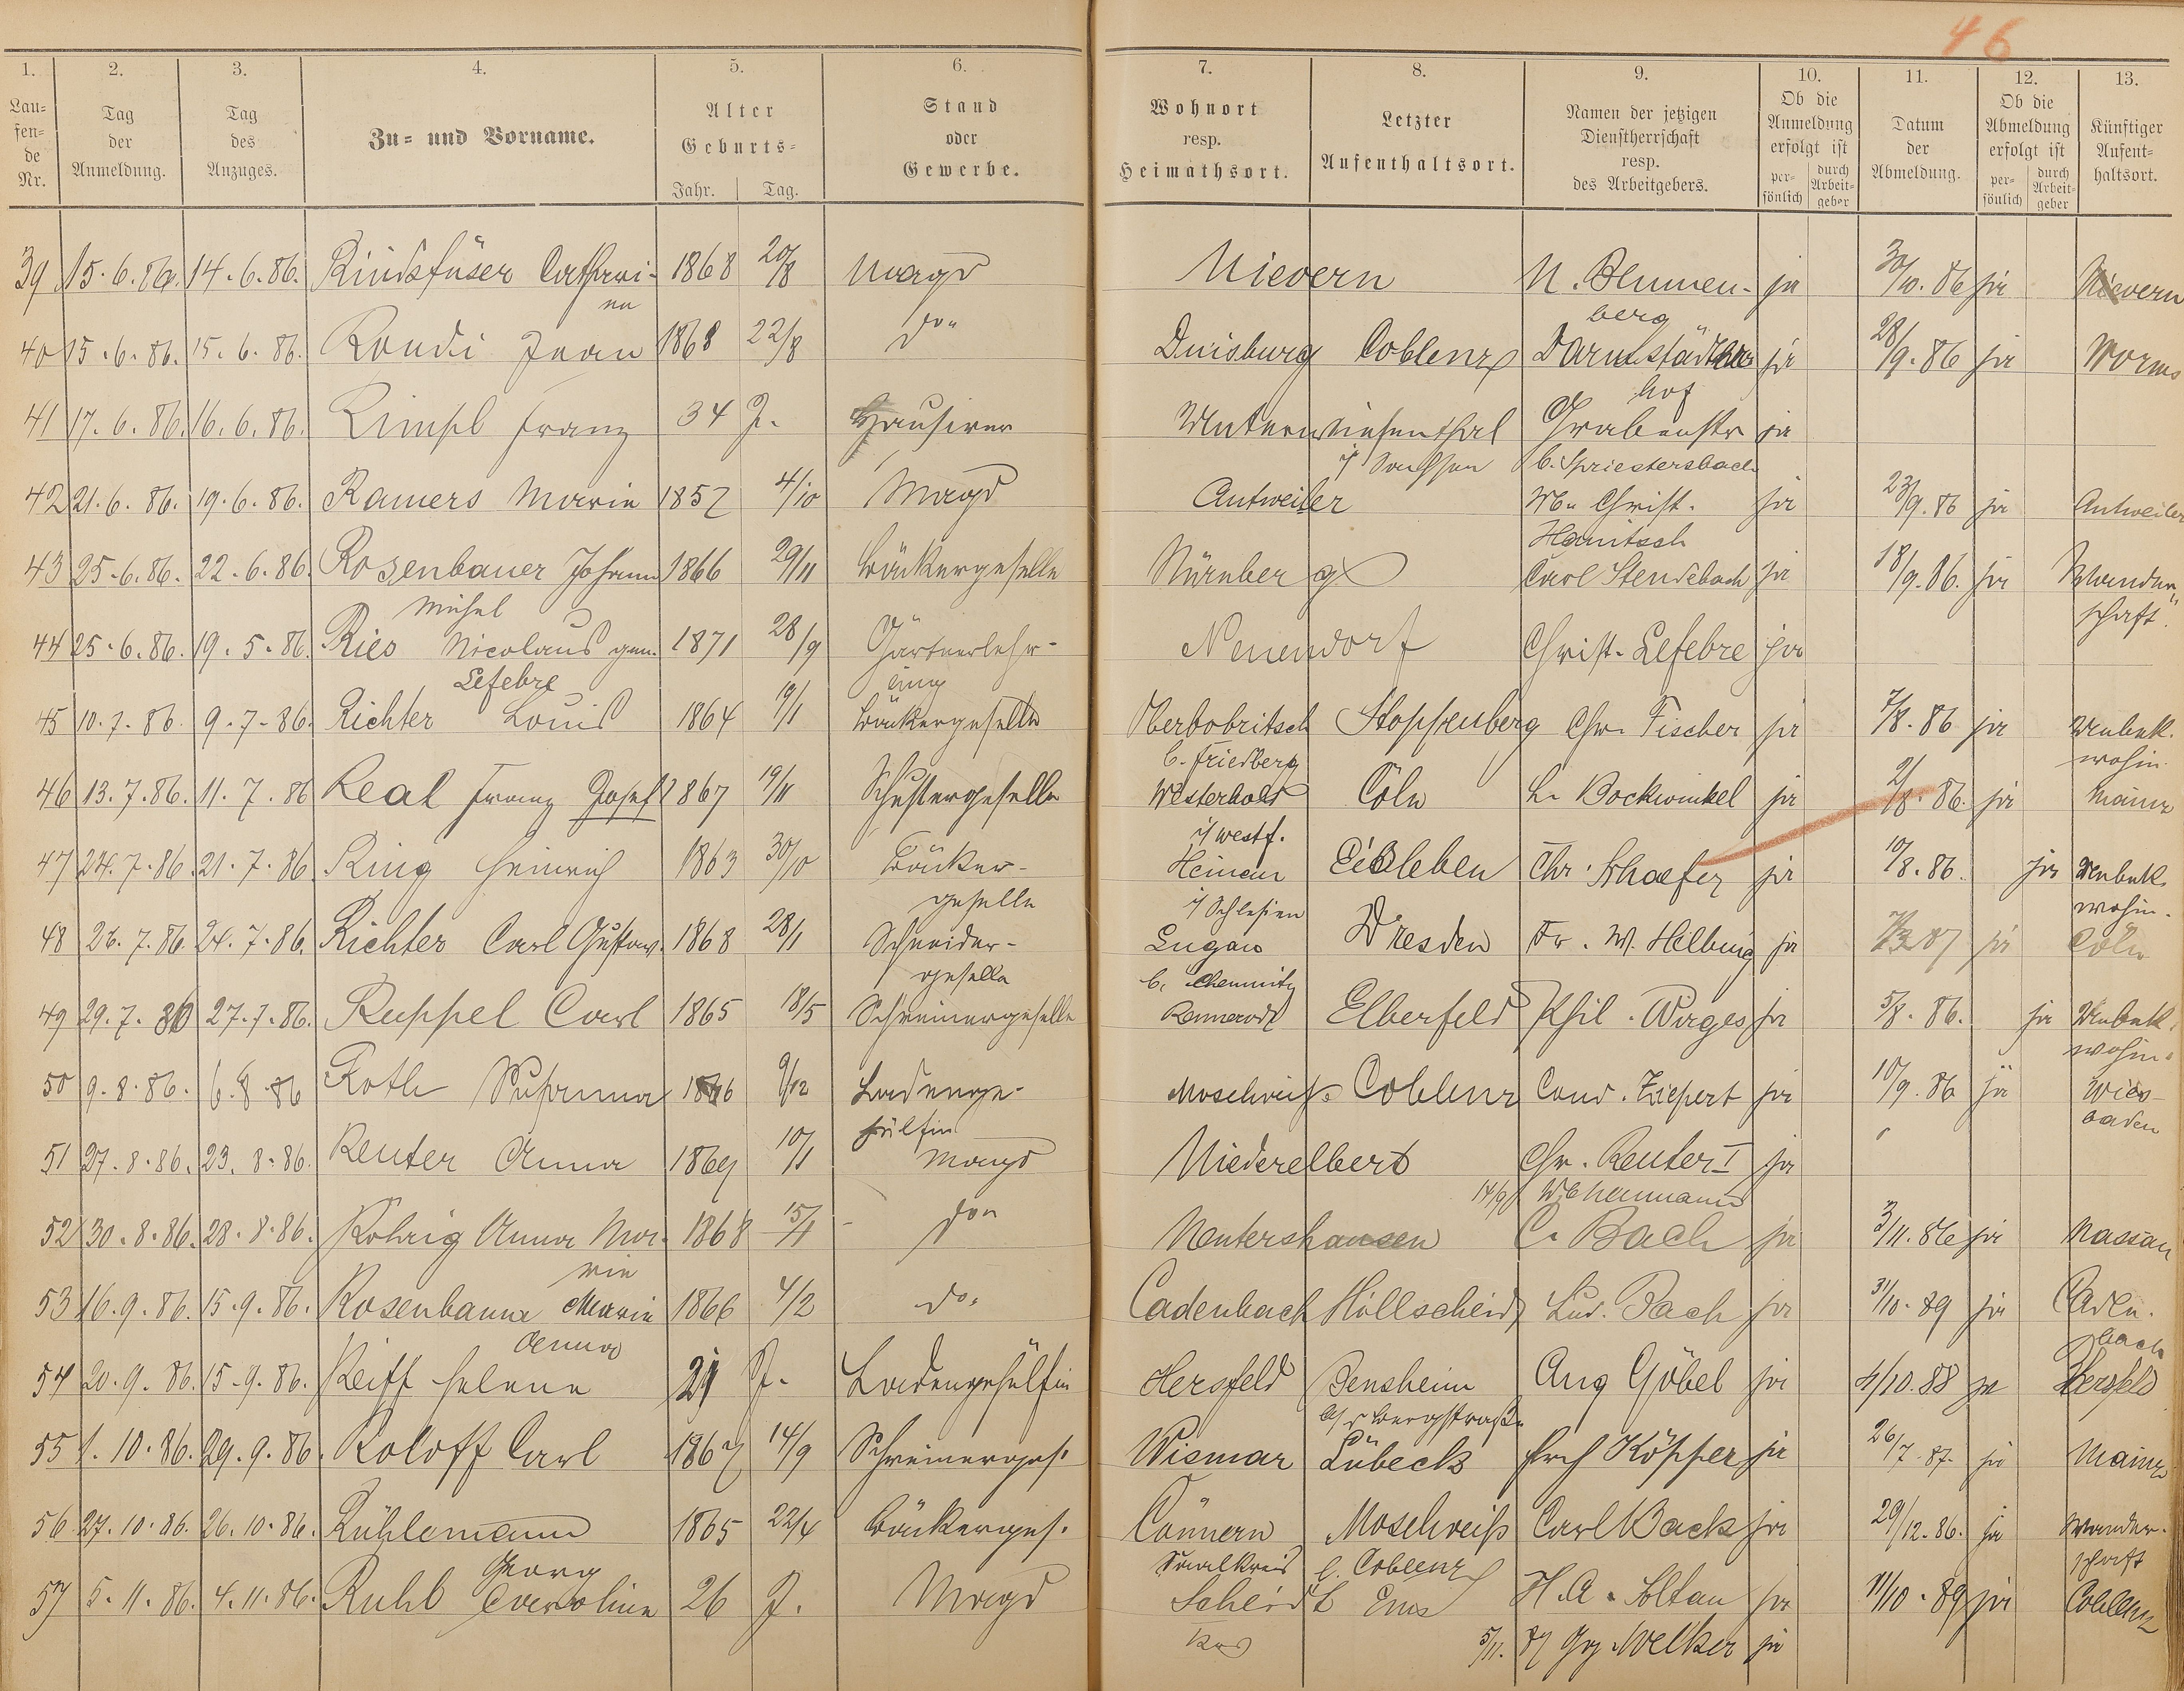 46
1. 2. 3. 4. 5. 6. 7. 8. 9. 10. 11. 12. 13.
Lau=
fen=
de
Nr.
Tag
der
Anmeldung.
Tag
des
Anzuges.
Zu= und Vorname.
Alter
Geburts=
Jahr. Tag.
Stand
oder
Gewerbe.
Wohnort
resp.
Heimathsort.
Letzter
Aufenthaltsort.
Namen der jetzigen
Dienstherrschaft
resp.
des Arbeitgebers.
Ob die
Anmeldung
erfolgt ist
per=
sönlich
durch
Arbeit=
geber
Datum
der
Abmeldung.
Ob die
Abmeldung
erfolgt ist
per=
sönlich
durch
Arbeit=
geber
Künftiger
Aufent=
haltsort.
39 15.6.86. 14.6.86. Rindsfüser Cathari- 1868 20/8 Magd Nievern N. Blumen- ja 30/10.86 ja Nievern
na berg
40 15.6.86. 15.6.86. Rondi Jean 1868 22/8 do Duisburg Coblenz Darmstädter ja 28/9.86 ja Worms
hof
41 17.6.86. 16.6.86. Rimpl Franz 34 J. Hausirer Unterwiesenthal Grabenstr ja
i/ Sachsen b. Spriestersbach
42 21.6.86. 19.6.86. Ramers Maria 1857 4/10 Magd Antweiler Wb. Christ. ja 23/9.86 ja Antweiler
Hanitsch
43 25.6.86. 22.6.86. Rosenbauer Johann 1866 29/11 Bäckergeselle Nürnberg Carl Stendebach ja 18/9.86. ja Wander-
Michel schaft.
44 25.6.86. 19.5.86. Ries Nicolaus gen. 1871 28/9 Gärtnerlehr- Neuendorf Christ. Lefebre ja
Lefebre ling
45 10.7.86. 9.7.86. Richter Louis 1864 19/1 Bäckergeselle Oberbobritsch Stoppenberg Chr. Fischer ja 7/8.86 ja Unbek.
b. Friedberg wohin
46 13.7.86. 11.7.86 Real Franz Josef 1867 19/11 Schustergeselle Westerholt Cöln L. Bockwinkel ja 2/8.86. ja Mainz
i/ Westf.
47 24.7.86. 21.7.86 Ring Heinrich 1863 30/10 Bäcker- Heinau Eisleben Chr. Schaefer ja 10/8.86. ja Unbek.
geselle i/ Schlesien wohin.
48 26.7.86. 24.7.86. Richter Carl Gustav. 1868 28/1 Schneider- Lugau Dresden Fr. W. Helbing ja 87 ja Cöln
geselle b. Chemnitz
49 29.7.86 27.7.86. Ruppel Carl 1865 18/5 Schreinergeselle Rennerod Elberfeld Phil. Wirges ja 5/8.86. ja Unbek.
wohin.
50 9.8.86. 6.8.86 Roth Susanna 1866 9/12 Ladenge- Moselweiß Coblenz Conr. Ziepert ja 10/9.86 ja Wies-
hülfin baden
51 27.8.86. 23.8.86. Reuter Anna 1869 10/1 Magd Niederelbert Chr. Reuter I ja
14/9 Wb Neumann
52 30.8.86. 28.8.86. Röhrig Anna Ma- 1868 15/1 do Nentershausen C. Bach ja 3/11.86 ja Nassau
rie
53 16.9.86. 15.9.86. Rosenbaum Maria 1866 4/2 do. Cadenbach Hillscheid Lud. Bach ja 31/10.89 ja Caden.
Anna bach
54 20.9.86. 15.9.86. Reiff Helene 21 J. Ladengehülfin Hersfeld Bensheim Aug Göbel ja 4/10.88 ja Hersfeld
a/d Bergstraße
55 1.10.86. 29.9.86. Roloff Carl 1867 14/9 Schreinerges. Wismar Lübeck Frch Köpper ja 26/7.87. ja Mainz
56 27.10.86. 26.10.86. Rühlemann 1865 22/4 Bäckerges. Cönnern Moselweiß Carl Back ja 29/12.86. ja Wander-
Georg Saalkreis b. Coblenz schaft
57 5.11.86. 4.11.86. Ruhl Caroline 26 J. Magd Scheidt Ems H. A. Soltau ja 11/10.89 ja Coblenz
5/11. 87 Gg Melker ja